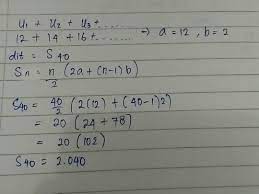 U1 + U2 + U3 + ......
12 + 14 + 16 + ...... → a = 12 , b = 2
dit = S40
Sn = n/2 (2a + (n-1) b)
S40 = 40/2 (2(12) + (40-1) 2)
= 20 (24 + 78)
= 20 (102)
S40 = 2.040